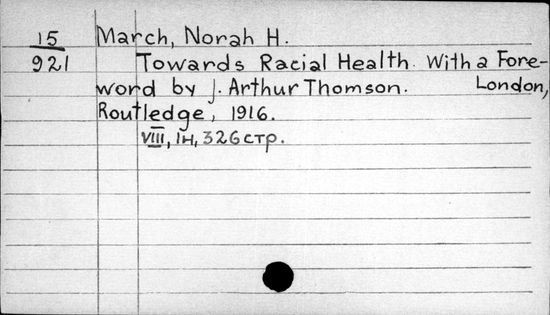 15
921
March, Norah H.
Towards Racial Health. With a Fore-
word by J. Arthur Thomson. London,
Routledge, 1916.
VIII, 1н, 326 стр.